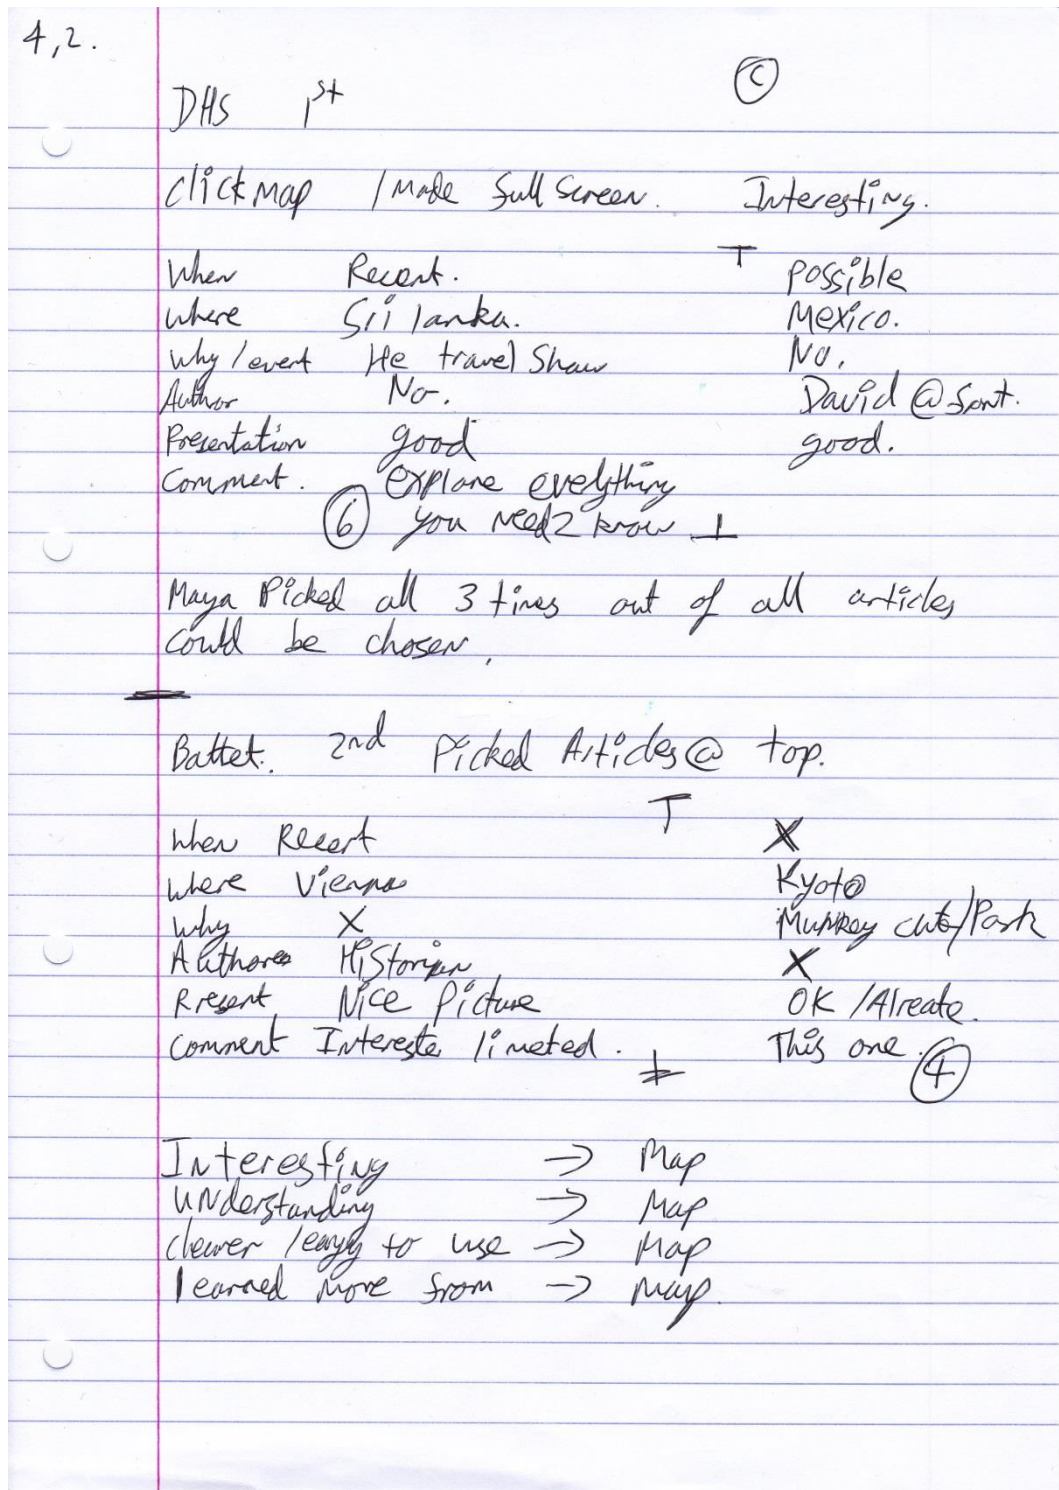 4,2.
DHS 1st Ⓒ
Click Map / Made full Screen. Interesting.
When Recent. possible
Where Sri lanka. Mexico.
Why / event He travel Show No.
Author No. David @ font.
Presentation good good.
Comment. explane everything
⑥ you need 2 know
Maya Picked all 3 times out of all articles
could be chosen.
2nd Picked Articles @ top.
When Recent X
Where Vienna Kyoto
Why X /Park
Author Historian X
Present Nice Picture OK /
Comment limeted. This one. ④
Interesting → Map
Understanding → Map
clearer / easy to use → Map
learned more from → Map.